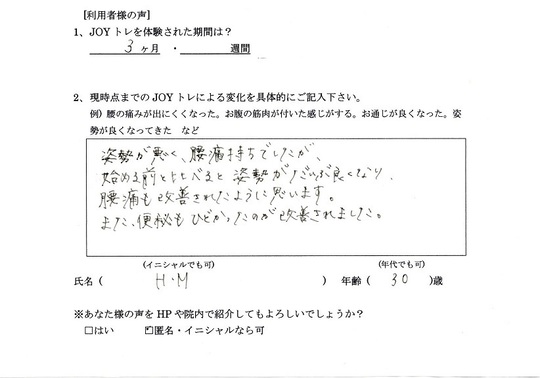 [利用者様の声]
1、JOYトレを体験された期間は?
3ヶ月 ・ 週間
2、現時点までのJOYトレによる変化を具体的にご記入下さい。
例)腰の痛みが出にくくなった。お腹の筋肉が付いた感じがする。お通じが良くなった。姿
勢が良くなってきた など
姿勢が悪く、腰痛持ちでしたが、
始める前と比べると姿勢がだいぶ良くなり、
腰痛も改善されたように思います。
また、便秘もひどかったのが改善されました。
(イニシャルでも可) (年代でも可)
氏名( H・M ) 年齢( 30 )歳
※あなた様の声をHPや院内で紹介してもよろしいでしょうか?
□はい ☑匿名・イニシャルなら可